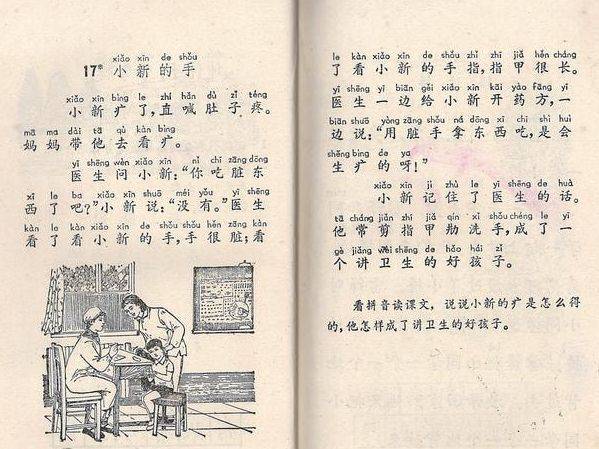 xiǎo xīn de shǒu
17* 小新的手
xiǎo xīn bìng le zhí hǎn dù zǐ téng
小新疒了,直喊肚子疼。
mā ma dài tā qù kàn bìng
妈妈带他去看疒。
yī shēng wèn xiǎo xīn nǐ chī zāng dōng
医生问小新:“你吃脏东
xī le ba xiǎo xīn shuō méi yǒu yī shēng
西了吧?”小新说:“没有。”医生
kàn le kàn xiǎo xīn de shǒu shǒu hěn zāng kàn
看了看小新的手,手很脏;看
le kàn xiǎo xīn de shǒu zhǐ zhǐ jiǎ hěn cháng
了看小新的手指,指甲很长。
yī shēng yī biān gěi xiǎo xīn kāi yào fāng yī
医生一边给小新开药方,一
biān shuō yòng zāng shǒu ná dōng xī chī shì huì
边说:“用脏手拿东西吃,是会
shēng bìng de ya
生疒的呀!”
xiǎo xīn jì zhù le yī shēng de huà
小新记住了医生的话。
tā cháng jiǎn zhǐ jiǎ qín xǐ shǒu chéng le yī
他常剪指甲洗手,成了一
gè jiǎng wèi shēng de hǎo hái zǐ
个讲卫生的好孩子。
看拼音读课文,说说小新的疒是怎么得
的,他怎样成了讲卫生的好孩子。